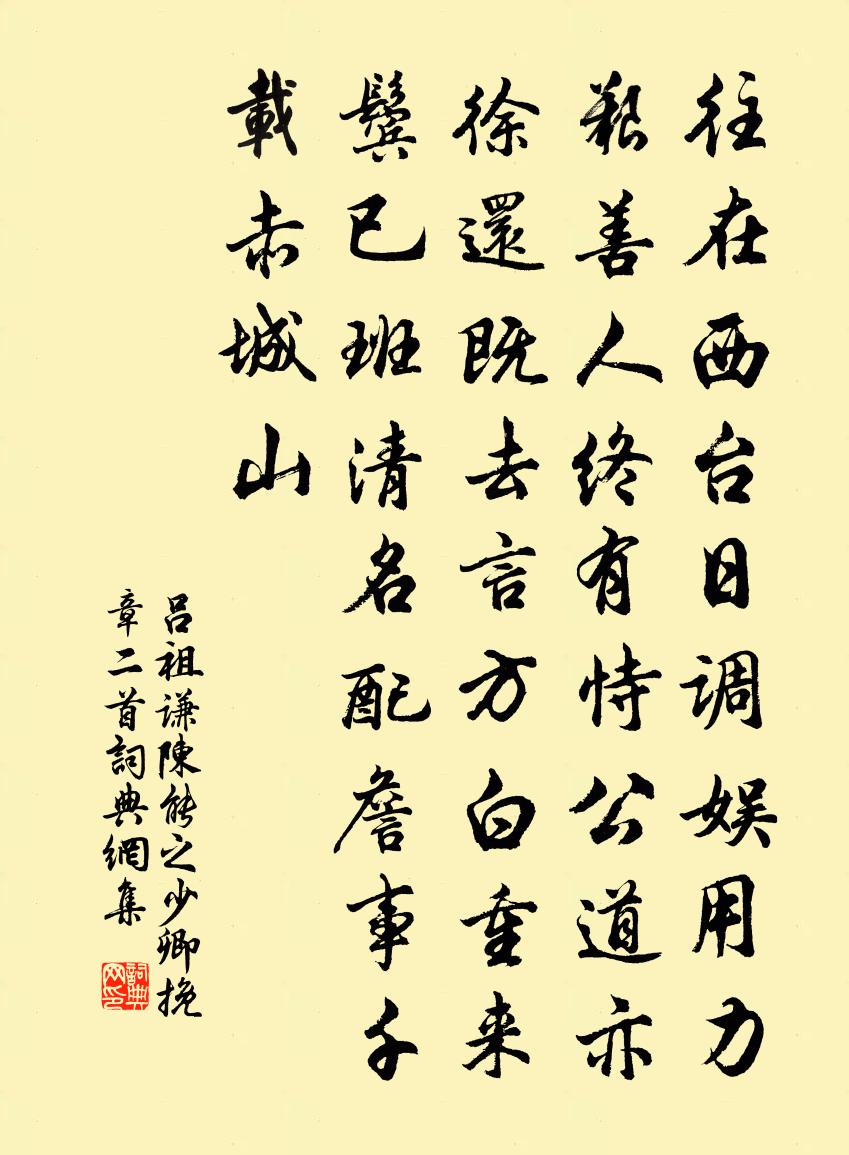 往在西台日调娱用力
艱善人终有恃公道亦
徐還既去言方白重来
鬓已班清名配詹事千
載赤城山
吕祖谦陳能之少卿挽
章二首詞典網集
詞典
网印